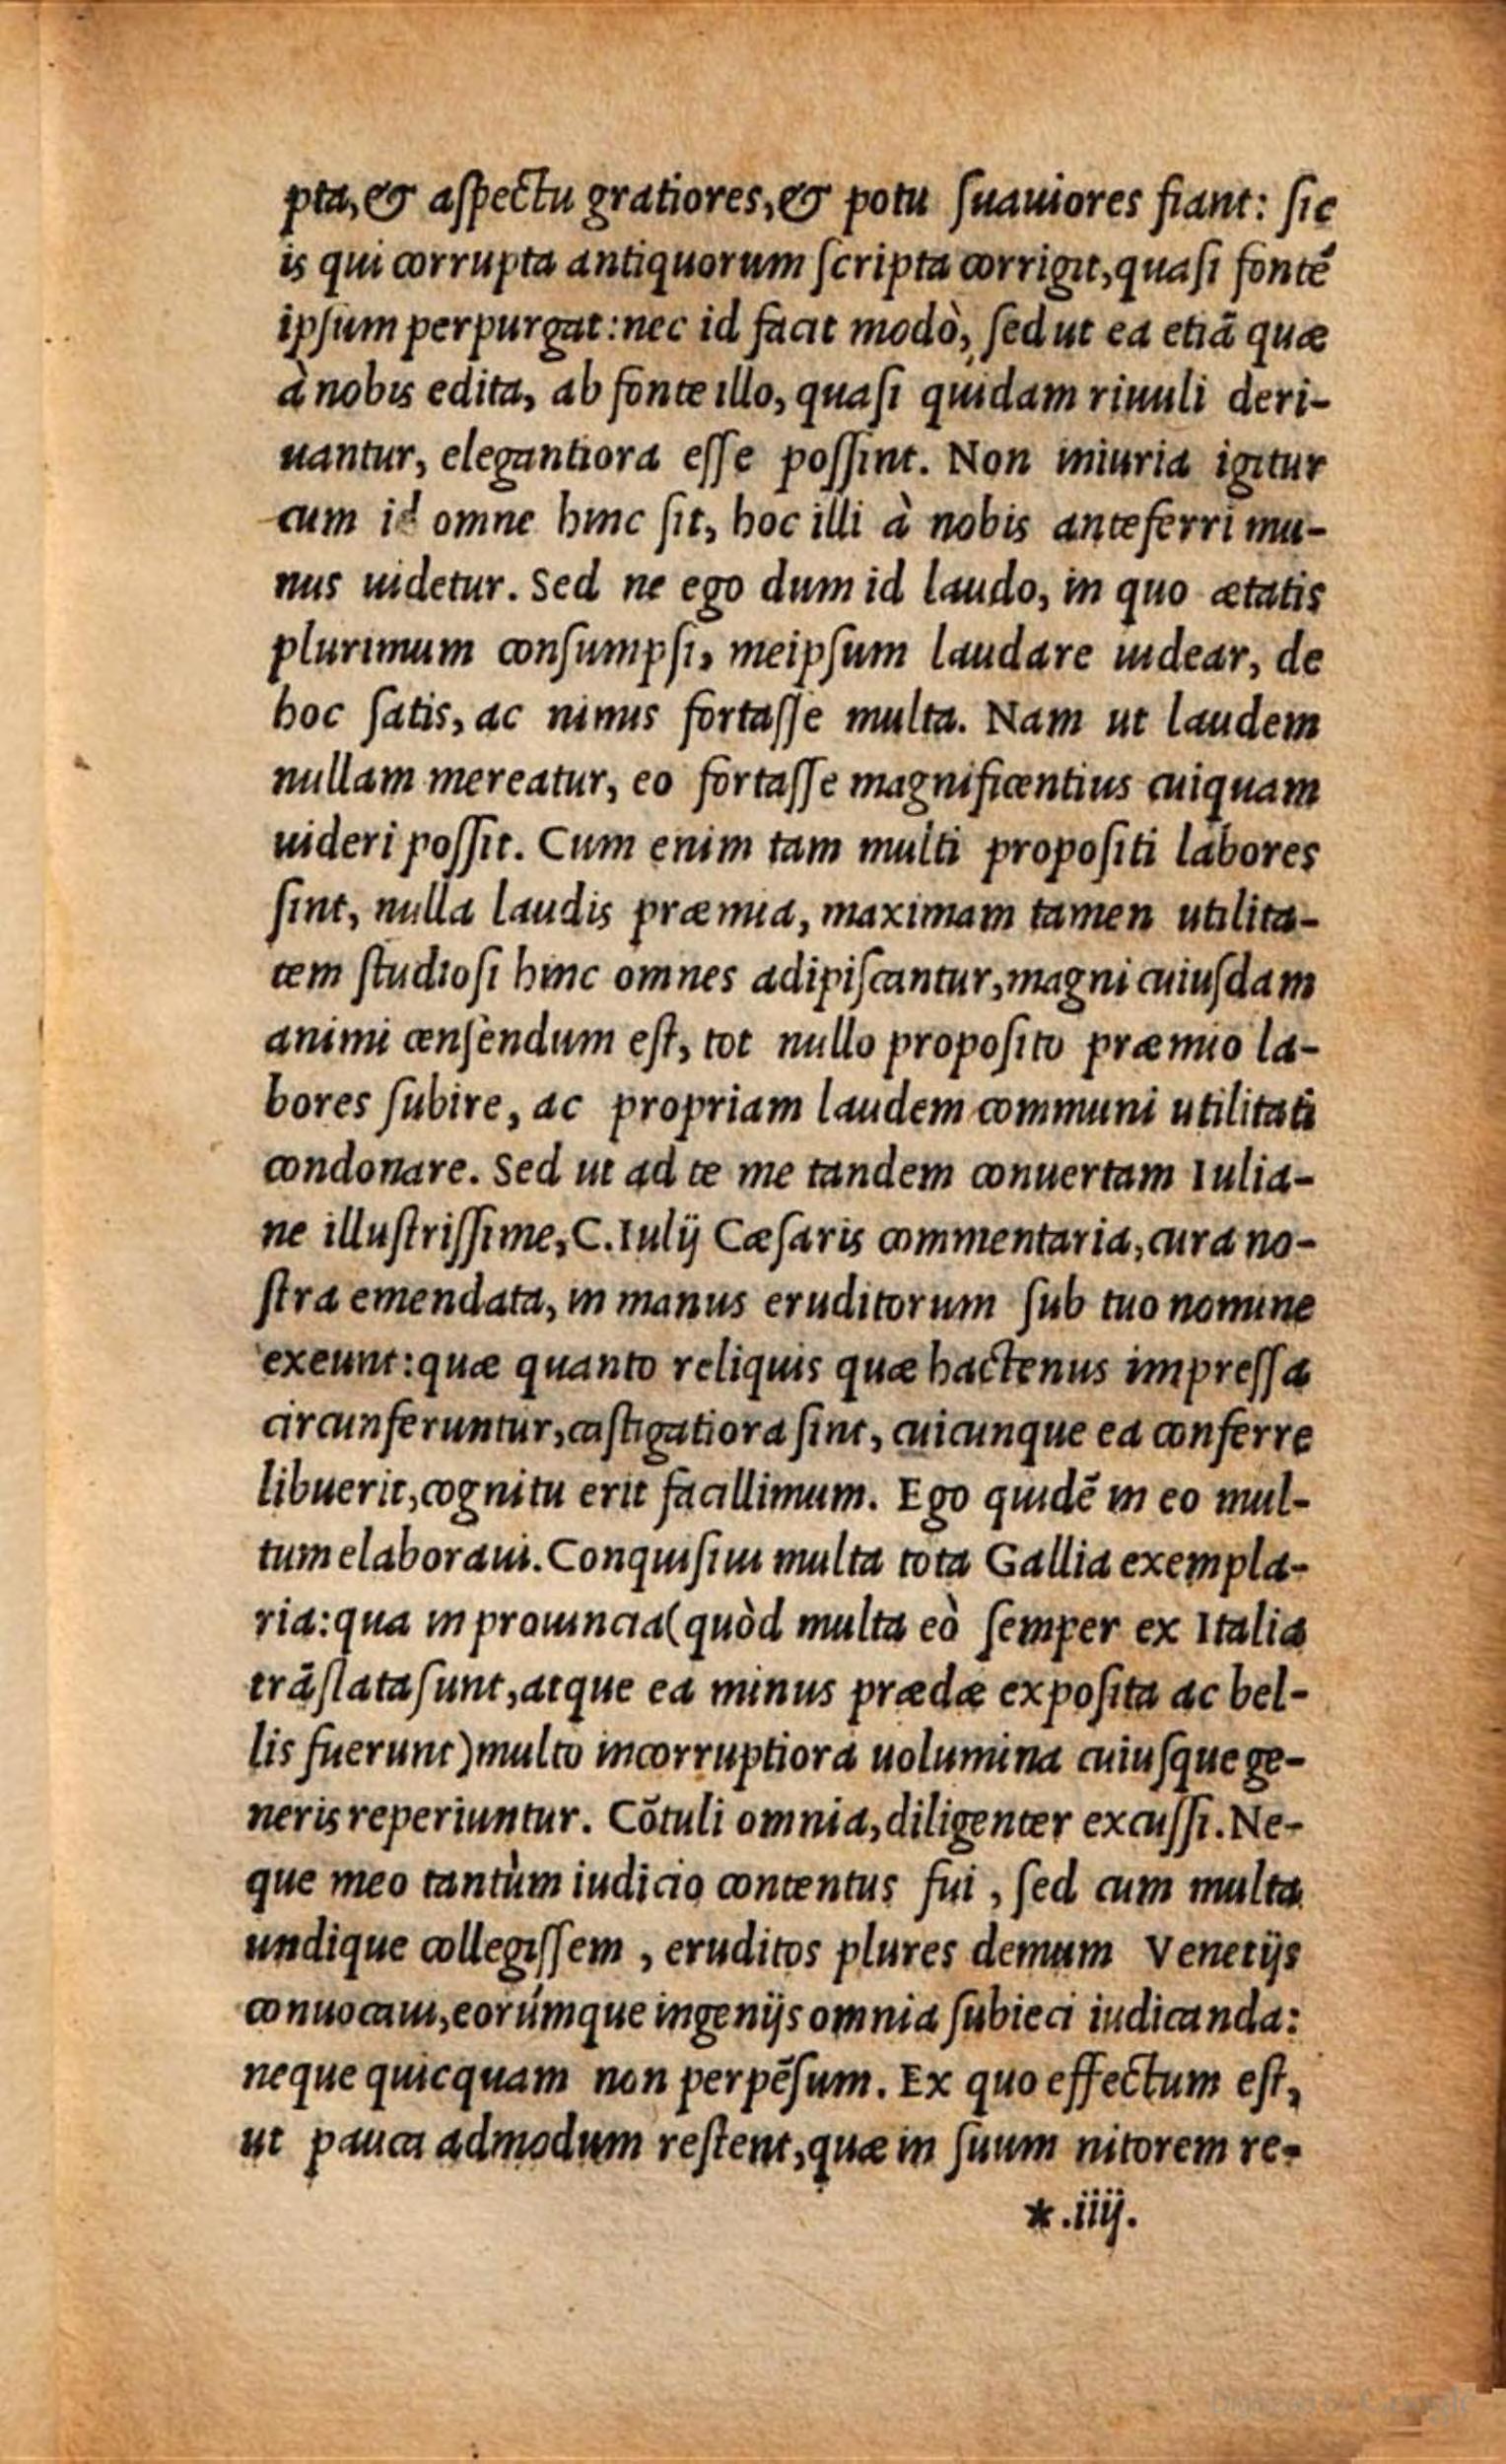 pta, & aſpectu gratiores, & potu ſuauiores fiant: ſic
is qui corrupta antiquorum ſcripta corrigit, quaſi fontē
ipſum perpurgat: nec id facit modò, ſed ut ea etiā quæ
à nobis edita, ab fonte illo, quaſi quidam riuuli deri-
uantur, elegantiora eſſe poſſint. Non iniuria igitur
cum id omne hinc ſit, hoc illi à nobis anteferri mu-
nus uidetur. Sed ne ego dum id laudo, in quo ætatis
plurimum conſumpſi, meipſum laudare uidear, de
hoc ſatis, ac nimis fortaſſe multa. Nam ut laudem
nullam mereatur, eo fortaſſe magnificentius cuiquam
uideri poſſit. Cum enim tam multi propoſiti labores
ſint, nulla laudis præmia, maximam tamen utilita-
tem ſtudioſi hinc omnes adipiſcantur, magni cuiuſdam
animi cenſendum eſt, tot nullo propoſito præmio la-
bores ſubire, ac propriam laudem communi utilitati
condonare. Sed ut ad te me tandem conuertam Iulia-
ne illuſtriſſime, C. Iulij Cæſaris commentaria, cura no-
ſtra emendata, in manus eruditorum ſub tuo nomine
exeunt: quæ quanto reliquis quæ hactenus impreſſa
circunferuntur, caſtigatiora ſint, cuicunque ea conferre
libuerit, cognitu erit facillimum. Ego quidē in eo mul-
tum elaboraui. Conquiſiui multa tota Gallia exempla-
ria: qua in prouincia (quòd multa eò ſemper ex Italia
trāſlata ſunt, atque ea minus prædæ expoſita ac bel-
lis fuerunt) multo incorruptiora uolumina cuiuſque ge-
neris reperiuntur. Cōtuli omnia, diligenter excuſſi. Ne-
que meo tantùm iudicio contentus fui, ſed cum multa
undique collegiſſem, eruditos plures demum Venetijs
conuocaui, eorúmque ingenijs omnia ſubieci iudicanda:
neque quicquam non perpēſum. Ex quo effectum eſt,
ut pauca admodum reſtent, quæ in ſuum nitorem re-
*.iiij.